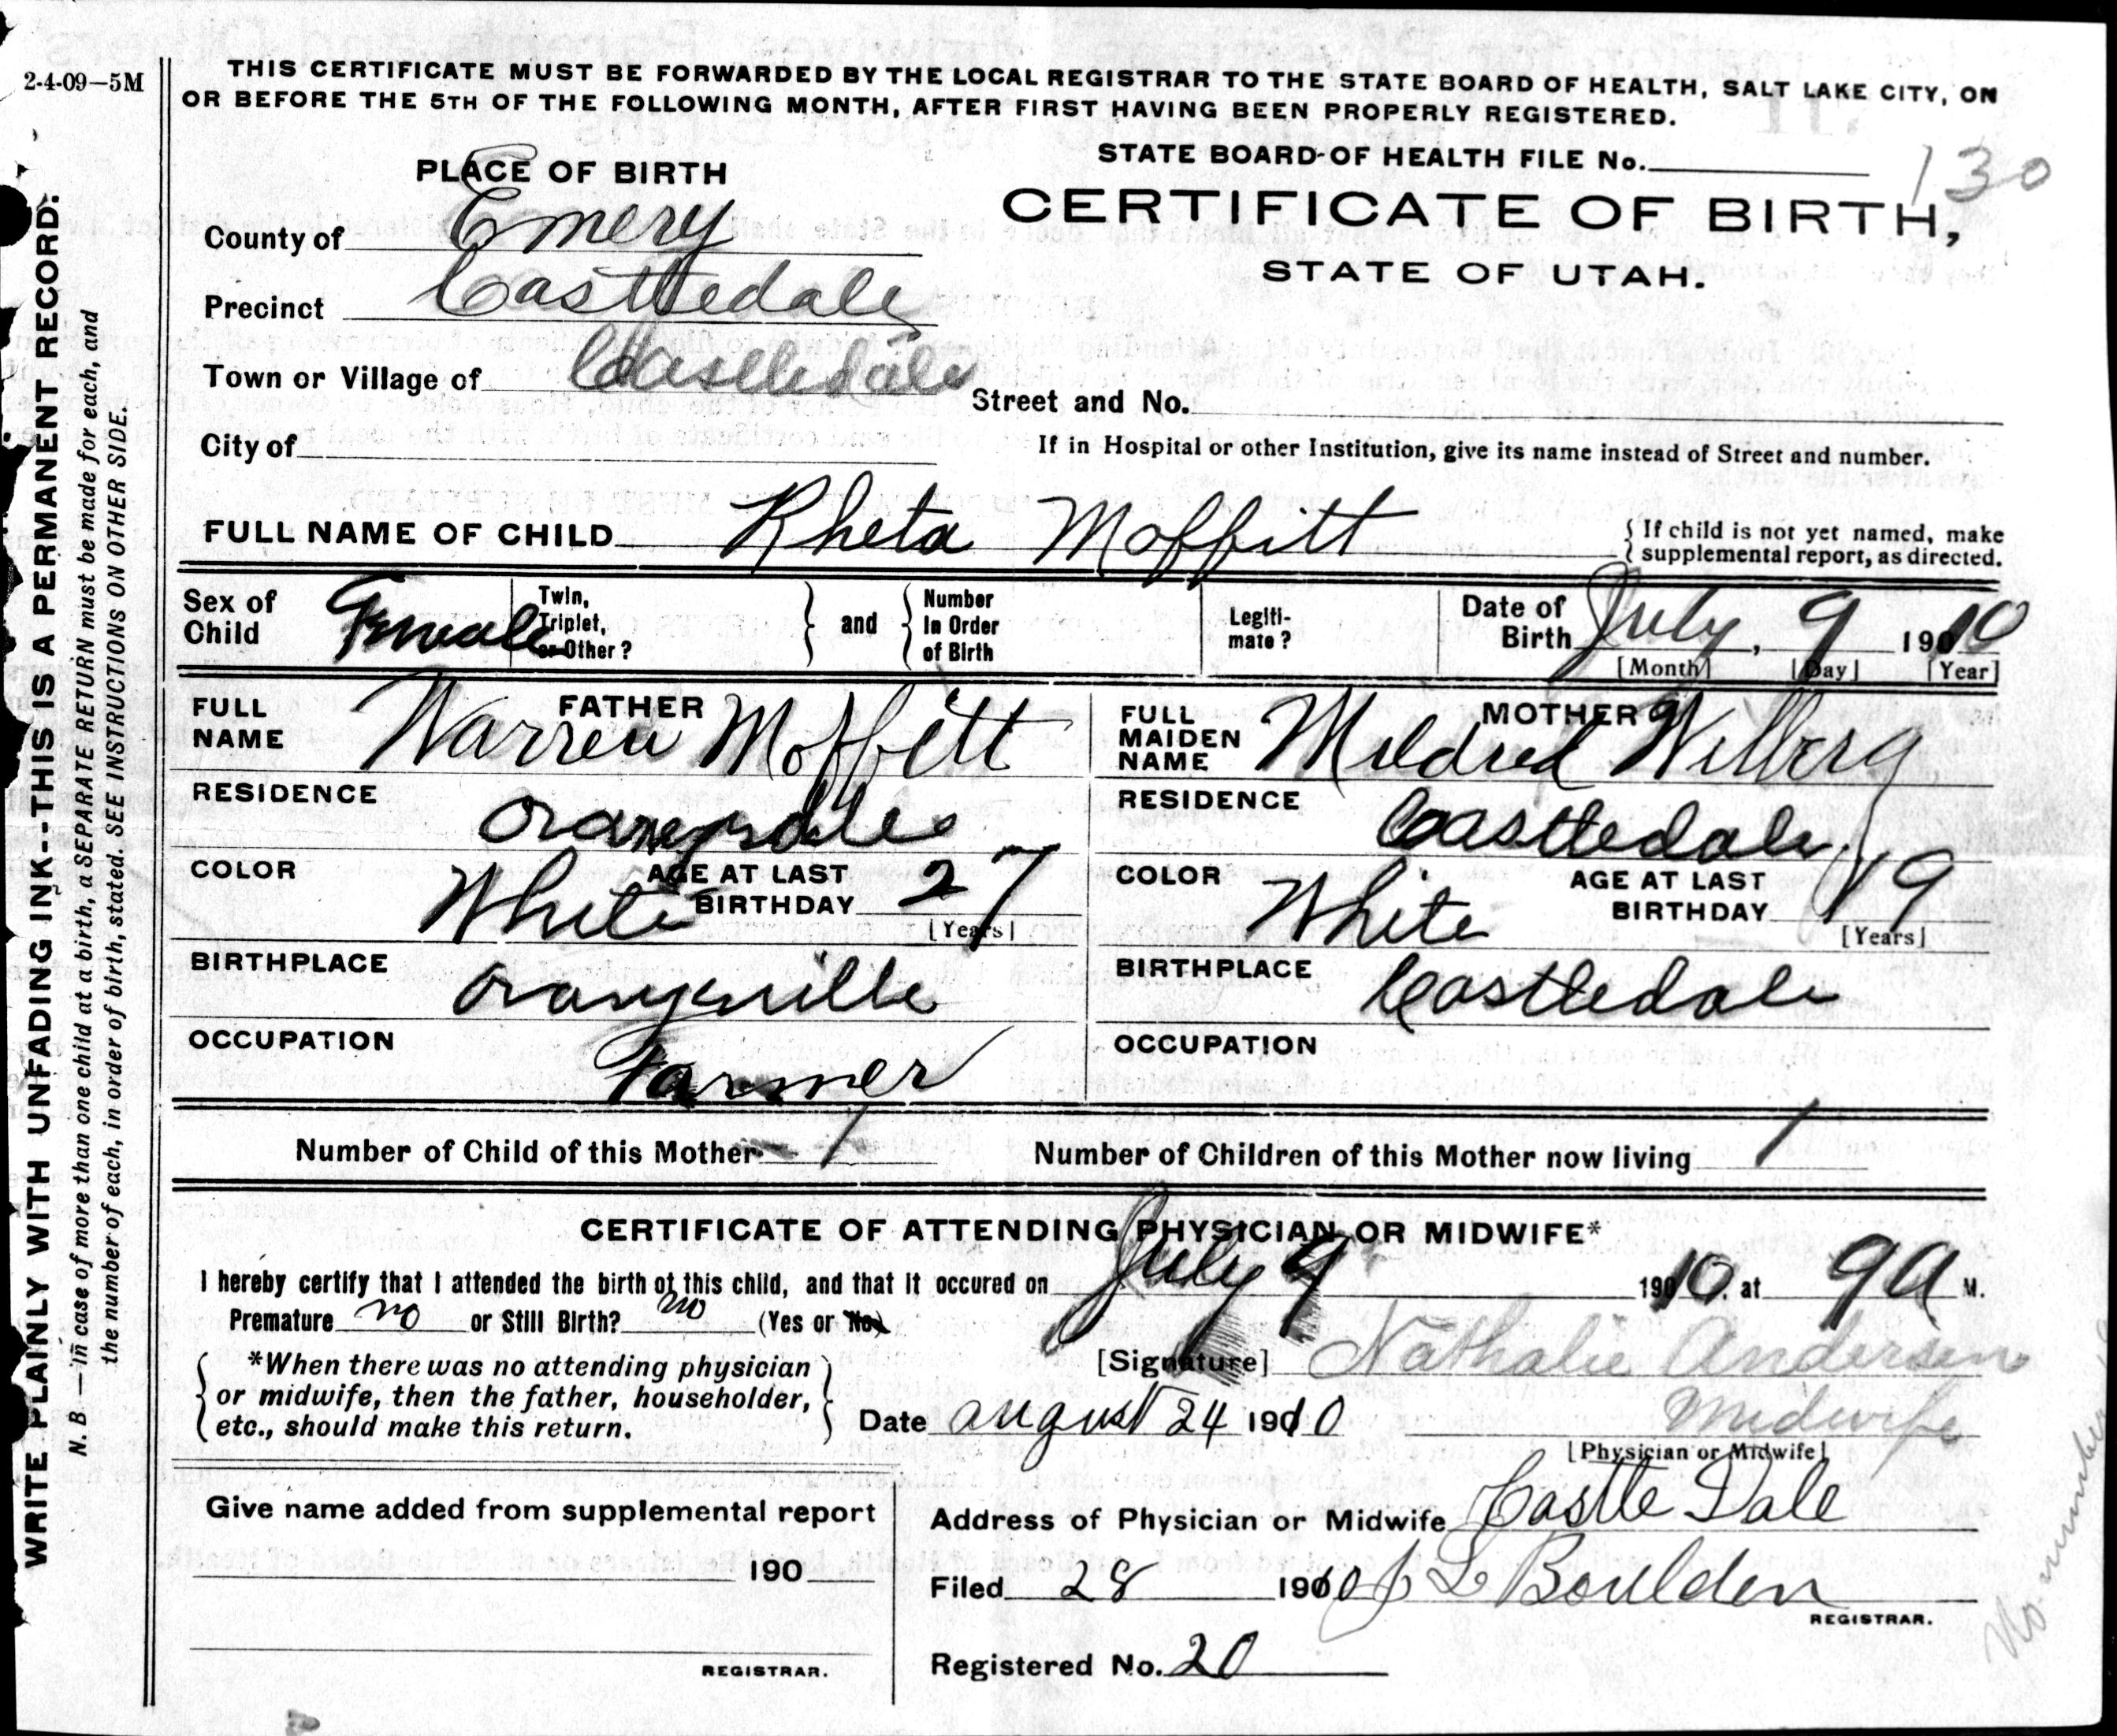 2-4-09—5M
THIS CERTIFICATE MUST BE FORWARDED BY THE LOCAL REGISTRAR TO THE STATE BOARD OF HEALTH, SALT LAKE CITY, ON
OR BEFORE THE 5TH OF THE FOLLOWING MONTH, AFTER FIRST HAVING BEEN PROPERLY REGISTERED.
WRITE PLAINLY WITH UNFADING INK--THIS IS A PERMANENT RECORD.
N. B.—In case of more than one child at a birth, a SEPARATE RETURN must be made for each, and
the number of each, in order of birth, stated. SEE INSTRUCTIONS ON OTHER SIDE.
PLACE OF BIRTH
STATE BOARD OF HEALTH FILE No. 130
CERTIFICATE OF BIRTH,
STATE OF UTAH.
County of Emery
Precinct Casttedale
Town or Village of Castledale
Street and No.
City of
If in Hospital or other Institution, give its name instead of Street and number.
FULL NAME OF CHILD Rheta Moffitt
{ If child is not yet named, make
{ supplemental report, as directed.
Sex of Child Female
Twin, Triplet, or Other? } and { Number In Order of Birth
Legiti-mate?
Date of Birth July, 9 1910
[Month] [Day] [Year]
FATHER
FULL NAME Warren Moffitt
MOTHER
FULL MAIDEN NAME Mildred Wilberg
RESIDENCE
RESIDENCE Casttedale
COLOR White AGE AT LAST BIRTHDAY 27
[Years]
COLOR White AGE AT LAST BIRTHDAY 19
[Years]
BIRTHPLACE Orangeville
BIRTHPLACE Castledale
OCCUPATION Farmer
OCCUPATION
Number of Child of this Mother 1
Number of Children of this Mother now living 1
CERTIFICATE OF ATTENDING PHYSICIAN OR MIDWIFE*
I hereby certify that I attended the birth of this child, and that it occured on July 9 1910. at 9 A M.
Premature no or Still Birth? no (Yes or No)
*When there was no attending physician
or midwife, then the father, householder,
etc., should make this return.
[Signature] Nathalie Andersen
Midwife
[Physician or Midwife]
Date August 24 1910
Give name added from supplemental report
190
REGISTRAR.
Address of Physician or Midwife Castle Dale
Filed 28 1910 J L Boulden
REGISTRAR.
Registered No. 20
No number